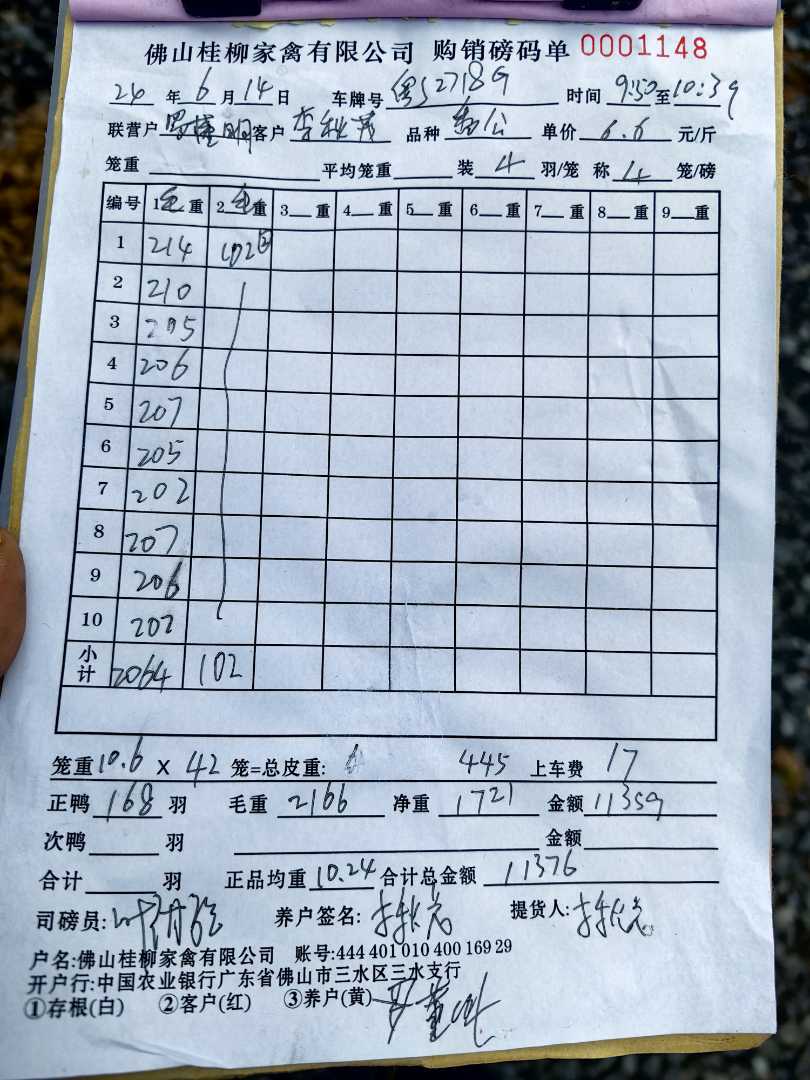 佛山桂柳家禽有限公司 购销磅码单 0001148
24 年 6 月 14 日 车牌号 粤S2718G 时间 9:50 至 10:39
联营户 客户 李秋茂 品种 公 单价 6.6 元/斤
笼重 平均笼重 装 4 羽/笼 称 4 笼/磅
编号 1 毛 重 2 毛 重 3 重 4 重 5 重 6 重 7 重 8 重 9 重
1 214 102②
2 210
3 205
4 206
5 207
6 205
7 202
8 207
9 206
10 202
小计 2064 102
笼重 10.6 X 42 笼=总皮重: 445 上车费 17
正鸭 168 羽 毛重 2166 净重 1721 金额 11359
次鸭 羽 金额
合计 羽 正品均重 10.24 合计总金额 11376
司磅员: 养户签名: 提货人:
户名:佛山桂柳家禽有限公司 账号:444 401 010 400 169 29
开户行:中国农业银行广东省佛山市三水区三水支行
①存根(白) ②客户(红) ③养户(黄)